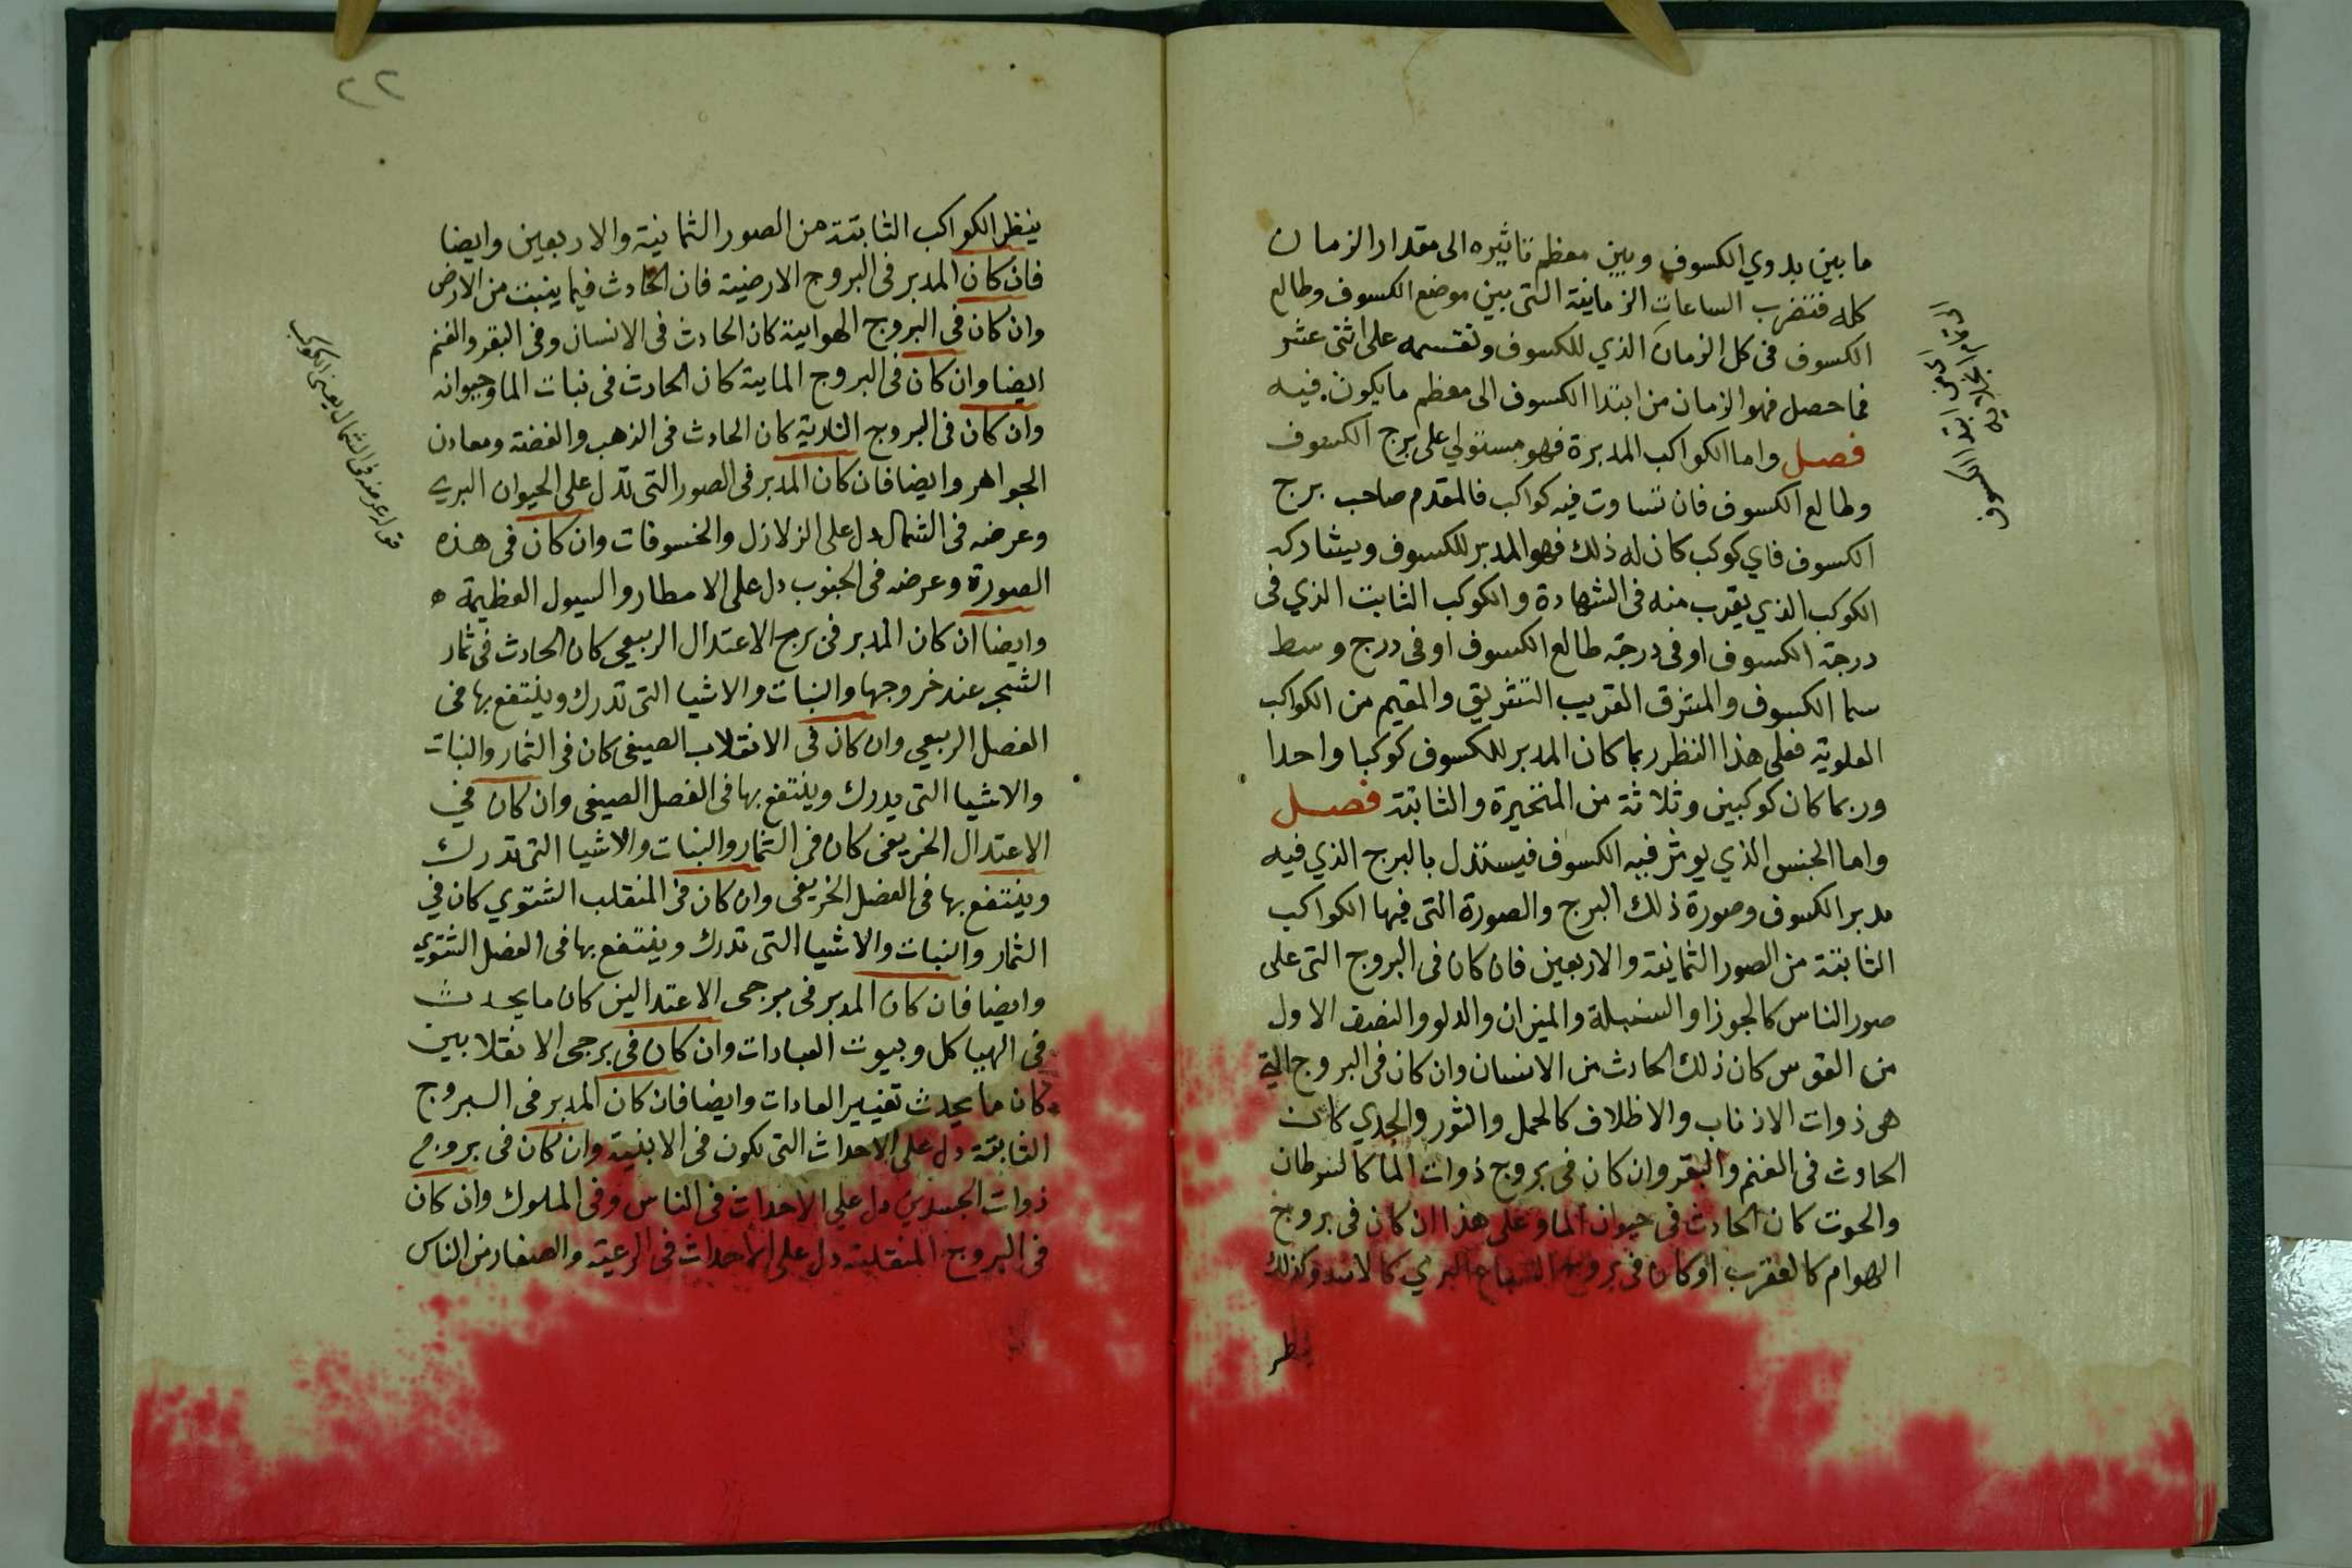 ما بين بدوي الكسوف وبين معظم تاثيره الى مقدار الزمان
كله فتضرب الساعات الزمانية التى بين موضع الكسوف وطالع
الكسوف فى كل الزمان الذي للكسوف وتقسمه على اثنى عشر
فما حصل فهو الزمان من ابتدا الكسوف الى معظم ما يكون فيه
فصل واما الكواكب المدبرة فهو مستولي على برج الكسوف
وطالع الكسوف فان تساوت فيه كواكب فالمقدم صاحب برج
الكسوف فاي كوكب كان له ذلك فهو المدبر للكسوف ويشاركه
الكوكب الذي يقرب منه فى الشهادة والكوكب الثابت الذي فى
درجة الكسوف او فى درجة طالع الكسوف او فى درج وسط
سما الكسوف والمشرق القريب التشريق والمقيم من الكواكب
العلوية فعلى هذا النظر ربما كان المدبر للكسوف كوكبا واحدا
وربما كان كوكبين وثلاثة من المتحيرة والثابتة فصل
واما الجنس الذي يوثر فيه الكسوف فيستدل بالبرج الذي فيه
مدبر الكسوف وصورة ذلك البرج والصورة التى فيها الكواكب
الثابتة من الصور الثمانية والاربعين فان كان فى البروج التى على
صور الناس كالجوزا والسنبلة والميزان والدلو والنصف الاول
من القوس كان ذلك الحادث من الانسان وان كان فى البروج التى
هى ذوات الاذناب والاظلاف كالحمل والثور والجدي كان
الحادث فى الغنم والبقر وان كان فى بروج ذوات الما كالسرطان
والحوت كان الحادث فى حيوان الما وعلى هذا ان كان فى بروج
الهوام كالعقرب او كان فى بروج السباع البري كالاسد وكذلك
ينظر
ابتدا الكسوف
٢٢
ينظر الكواكب الثابتة من الصور الثمانية والاربعين وايضا
فان كان المدبر فى البروج الارضية فان الحادث فيما ينبت من الارض
وان كان فى البروج الهوايية كان الحادث فى الانسان وفى البقر والغنم
ايضا وان كان فى البروج المايية كان الحادث فى نبات الما وحيوانه
وان كان فى البروج النارية كان الحادث فى الذهب والفضة ومعادن
الجواهر وايضا فان كان المدبر فى الصور التى تدل على الحيوان البري
وعرضه فى الشمال دل على الزلازل والخسوفات وان كان فى هذه
الصورة وعرضه فى الجنوب دل على الامطار والسيول العظيمة ه
وايضا ان كان المدبر فى برج الاعتدال الربيعي كان الحادث فى ثمار
الشجر عند خروجها والنبات والاشيا التى تدرك وينتفع بها فى
الفصل الربيعي وان كان فى الانقلاب الصيفى كان فى الثمار والنبات
والاشيا التى يدرك وينتفع بها فى الفصل الصيفى وان كان فى
الاعتدال الخريفى كان فى الثمار والنبات والاشيا التى تدرك
وينتفع بها فى الفصل الخريفى وان كان فى المنقلب الشتوي كان فى
الثمار والنبات والاشيا التى تدرك وينتفع بها فى الفصل الشتوي
وايضا فان كان المدبر فى برجى الاعتدالين كان ما يحدث
فى الهياكل وبيوت العبادات وان كان فى برجى الانقلابين
كان ما يحدث تغيير العادات وايضا فان كان المدبر فى البروج
الثابتة دل على الاحداث التى يكون فى الابنية وان كان فى بروج
ذوات الجسدين دل على الاحداث فى الناس وفى الملوك وان كان
فى البروج المنقلبة دل على الاحداث فى الرعية والصغار من الناس
قوله عرضه فى الشمال يعنى الكوكب